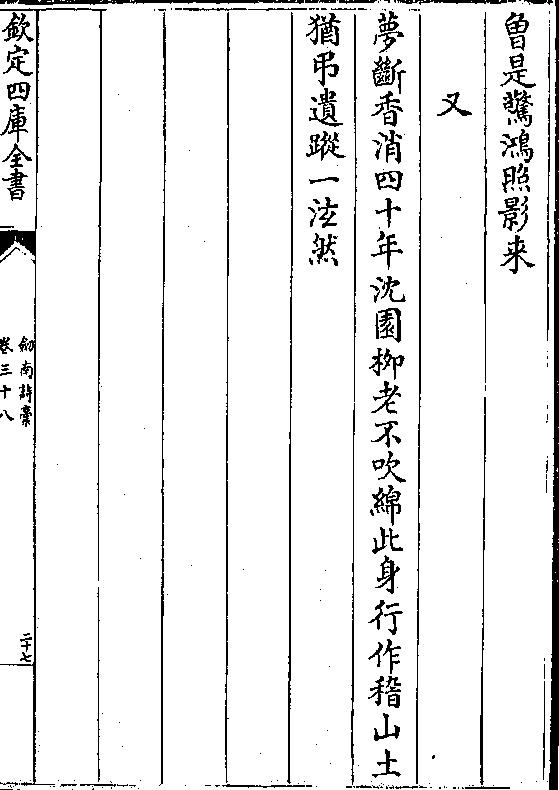 曾是驚鴻照影来
又
夢斷香消四十年沈園柳老不吹綿此身行作稽山土
猶弔遺蹤一泫然
欽定四庫全書
劒南詩藁
卷三十八
二十七